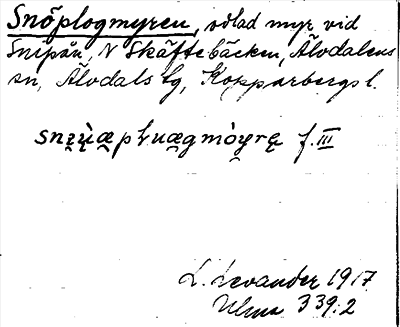 Snöplogmyren, odlad myr vid
Snipån, N Skäftebäcken, Älvdalens
sn, Älvdals tg, Kopparbergs l.
f. III
L. Levander 1917
Ulma 339:2